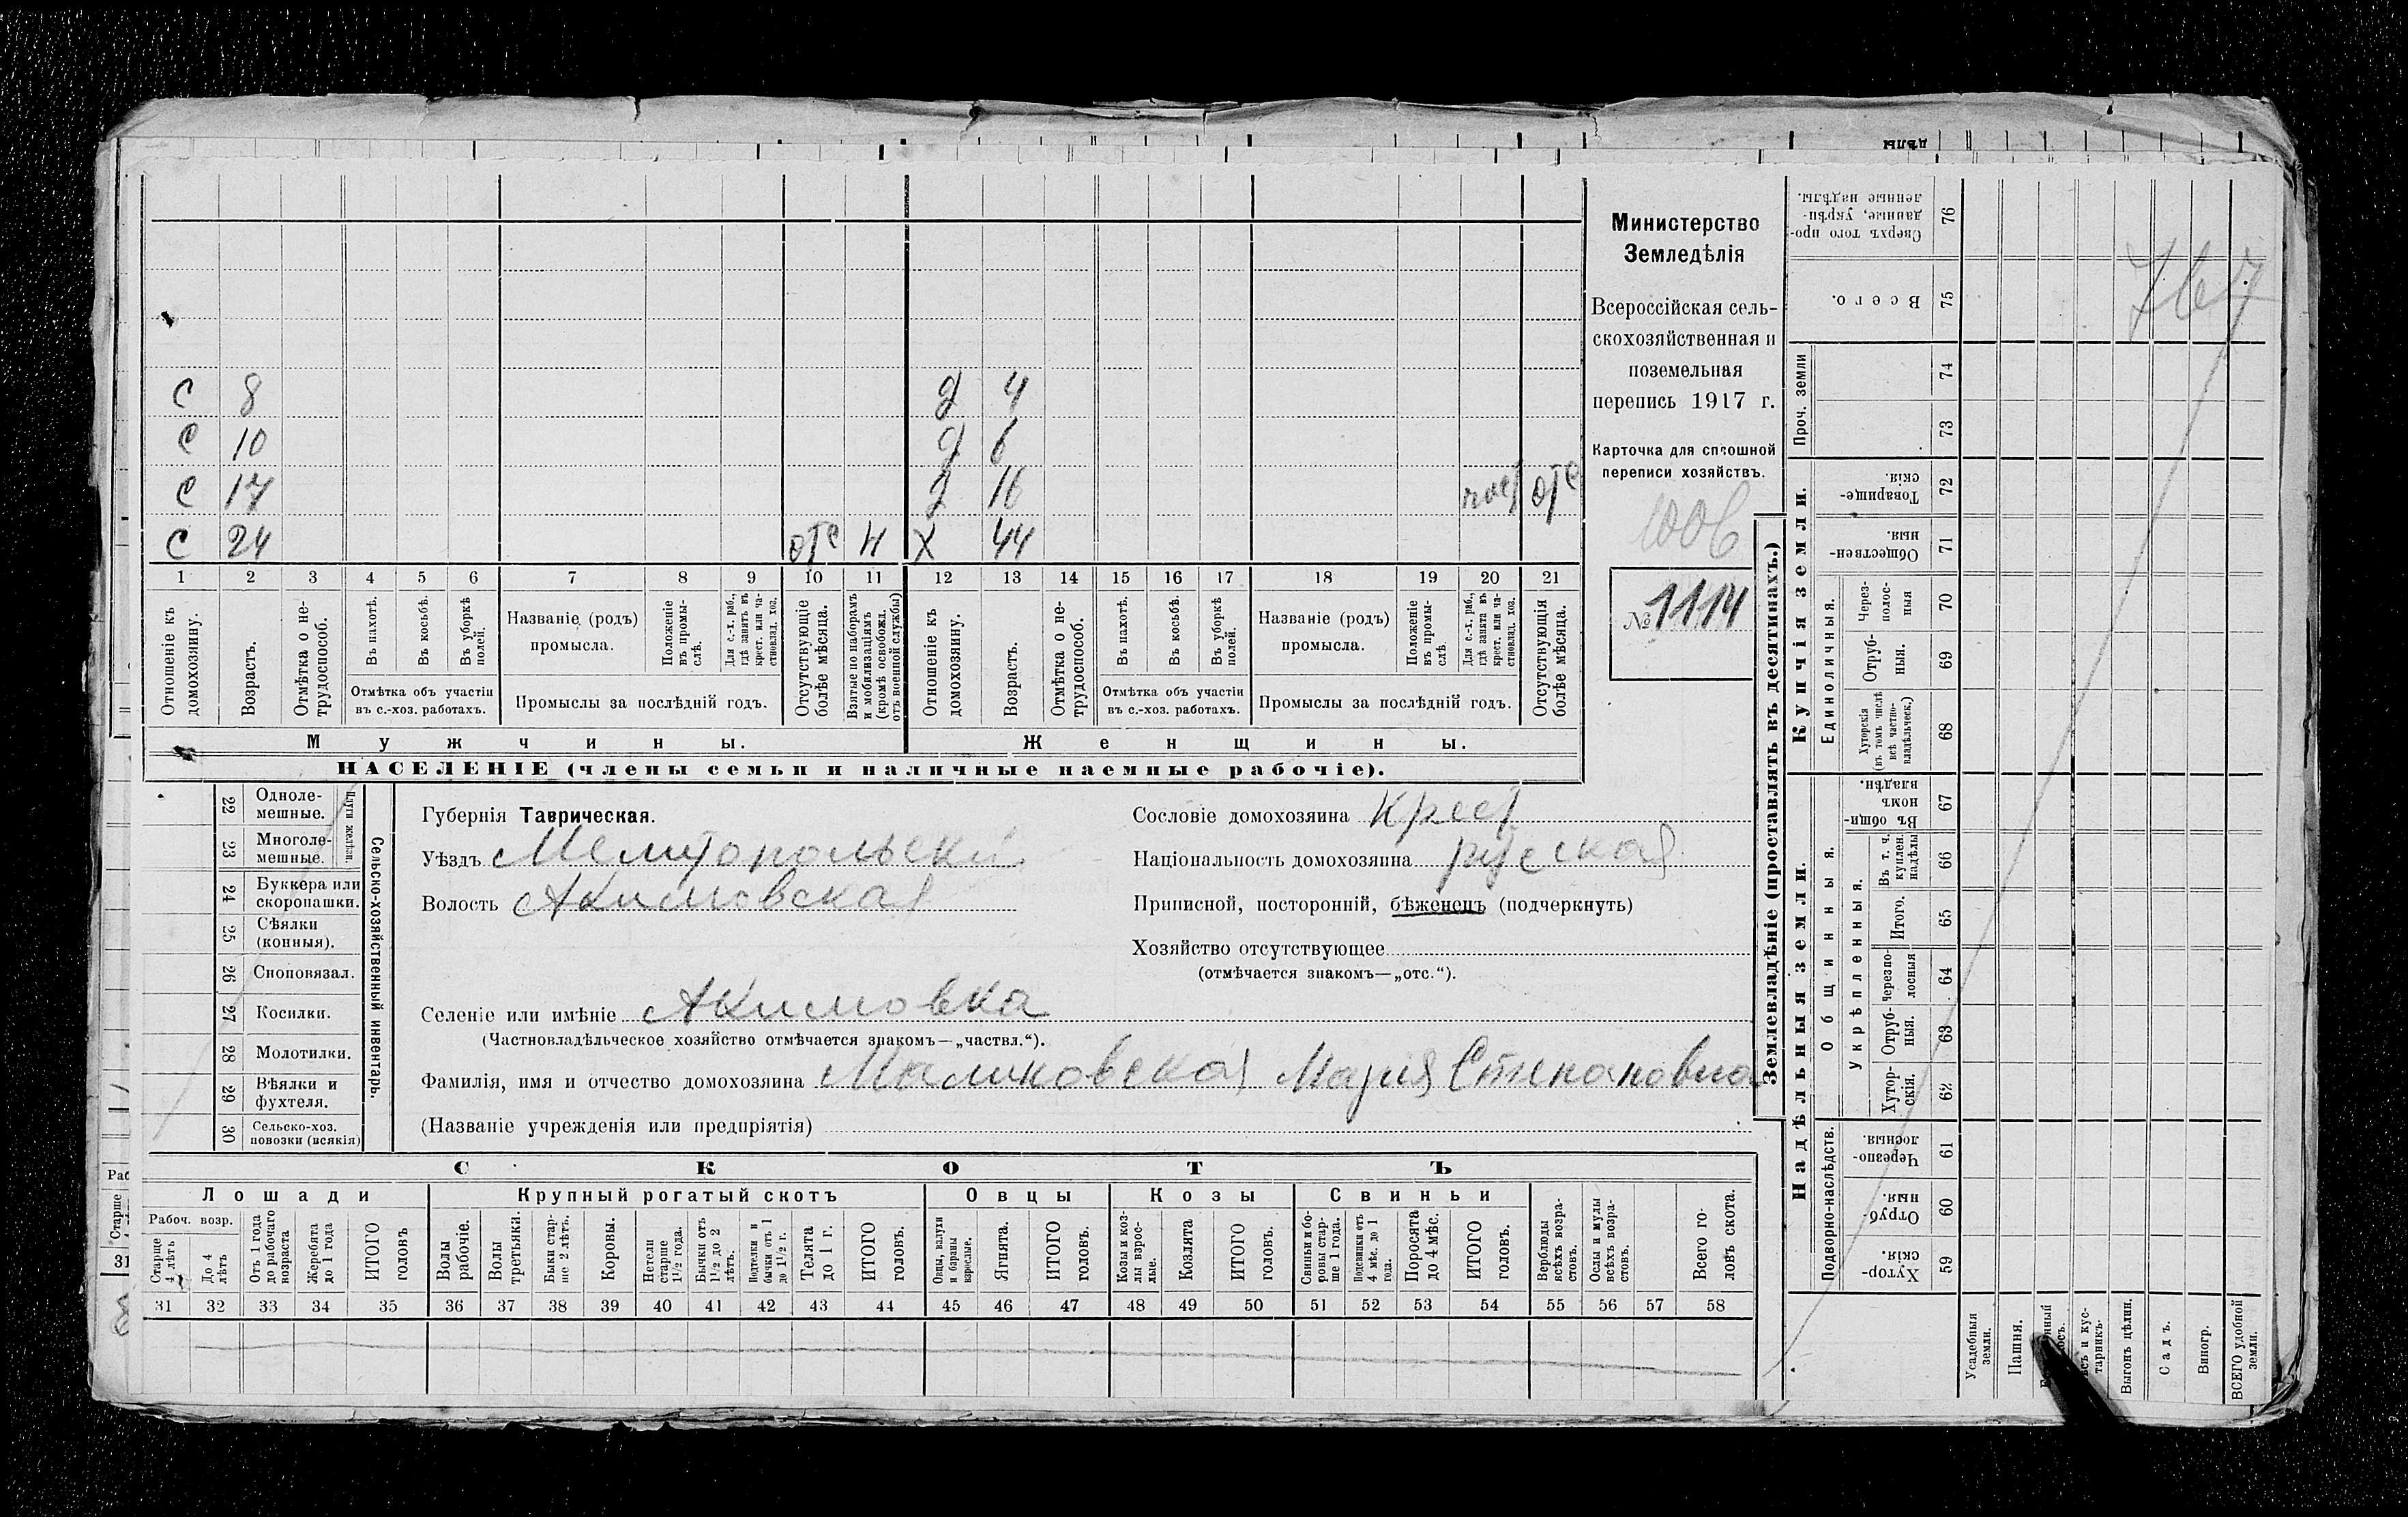 С 8 Д 4
С 10 Д 6
С 17 Д 16 отс
С 24 отс Н Х 44
1 2 3 4 5 6 7 8 9 10 11 12 13 14 15 16 17 18 19 20 21
Отношеніе къ домохозяину.
Возрастъ.
Отмѣтка о не-
трудоспособ.
Въ пахотѣ.
Въ косьбѣ.
Въ уборкѣ
полей.
Отмѣтка объ участіи
въ с.-хоз. работахъ.
Названіе (родъ)
промысла.
Положеніе
въ промы-
слѣ.
Для с.-х. раб.,
гдѣ занятъ въ
крест. или ча-
стновлад. хоз.
Промыслы за послѣдній годъ.
Отсутствующіе
болѣе мѣсяца.
Взятые по наборамъ
и мобилизаціямъ
(кромѣ освобожд.
отъ военной службы)
Отношеніе къ
домохозяину.
Возрастъ.
Отмѣтка о не-
трудоспособ.
Въ пахотѣ.
Въ косьбѣ.
Въ уборкѣ
полей.
Отмѣтка объ участіи
въ с.-хоз. работахъ.
Названіе (родъ)
промысла.
Положеніе
въ промы-
слѣ.
Для с.-х. раб.,
гдѣ занята въ
крест. или ча-
стновлад. хоз.
Промыслы за послѣдній годъ.
Отсутствующія
болѣе мѣсяца.
Мужчины.
Женщины.
НАСЕЛЕНІЕ (члены семьи и наличные наемные рабочіе).
Министерство
Земледѣлія
Всероссійская сель-
скохозяйственная и
поземельная
перепись 1917 г.
Карточка для сплошной
переписи хозяйствъ.
1006
№ 1114
22 Одноле-
мешные.
23 Многоле-
мешные.
Плуги желѣзн.
24 Буккера или
скоропашки.
25 Сѣялки
(конныя).
26 Сноповязал.
27 Косилки.
28 Молотилки.
29 Вѣялки и
фухтеля.
30 Сельско-хоз.
повозки (всякія)
Сельско-хозяйственный инвентарь.
Губернія Таврическая.
Уѣздъ Мелитопольскій
Волость Акимовская
Сословіе домохозяина Крест
Національность домохозяина русская
Приписной, посторонній, бѣженецъ (подчеркнуть)
Хозяйство отсутствующее
(отмѣчается знакомъ—„отс.“).
Селеніе или имѣніе Акимовка
(Частновладѣльческое хозяйство отмѣчается знакомъ—„частвл.“).
Фамилія, имя и отчество домохозяина Маликовская Мария Степановна
(Названіе учрежденія или предпріятія)
СКОТЪ
Лошади
Крупный рогатый скотъ
Овцы
Козы
Свиньи
Рабоч. возр.
Старше
4 лѣтъ
До 4
лѣтъ
Отъ 1 года
до рабочаго
возраста
Жеребята
до 1 года
ИТОГО
головъ
Волы
рабочіе.
Волы
третьяки.
Быки стар-
ше 2 лѣтъ.
Коровы.
Нетели
старше
1½ года.
Бычки отъ
1½ до 2
лѣтъ.
Подтелки и
бычки отъ 1
до 1½ г.
Телята
до 1 г.
ИТОГО
головъ.
Овцы, валухи
и бараны
взрослые.
Ягнята.
ИТОГО
головъ.
Козы и коз-
лы взрос-
лые.
Козлята
ИТОГО
головъ.
Свиньи и бо-
ровы стар-
ше 1 года.
Подсвинки отъ
4 мѣс. до 1
года.
Поросята
до 4 мѣс.
ИТОГО
головъ.
Верблюды
всѣхъ возра-
стовъ.
Ослы и мулы
всѣхъ возра-
стовъ.
Всего го-
ловъ скота.
31 32 33 34 35 36 37 38 39 40 41 42 43 44 45 46 47 48 49 50 51 52 53 54 55 56 57 58
Землевладѣніе (проставлять въ десятинахъ.)
Купчія земли.
Надѣльныя земли.
Проч. земли
Единоличныя.
Общинныя.
Укрѣпленныя.
Подворно-наслѣдств.
76 Сверхъ того про-
данные, укрѣп-
ленные надѣлы.
75 Всего.
74
73
72 Товарище-
скія.
71 Обществен-
ныя.
70 Через-
полос-
ныя
69 Отруб-
ныя.
68 Хуторскія
(въ томъ числѣ
всѣ частно-
владѣльческ.)
67 Въ общин-
номъ
владѣн.
66 Въ т. ч.
куплен.
надѣлы
65 Итого.
64 Черезпо-
лосныя
63 Отруб-
ныя.
62 Хутор-
скія.
61 Черезпо-
лосныя.
60 Отруб-
ныя.
59 Хутор-
скія.
Усадебныя
земли.
Пашня.
Выгонъ цѣлин.
Садъ.
Виногр.
ВСЕГО удобной
земли.
767
Старше
31